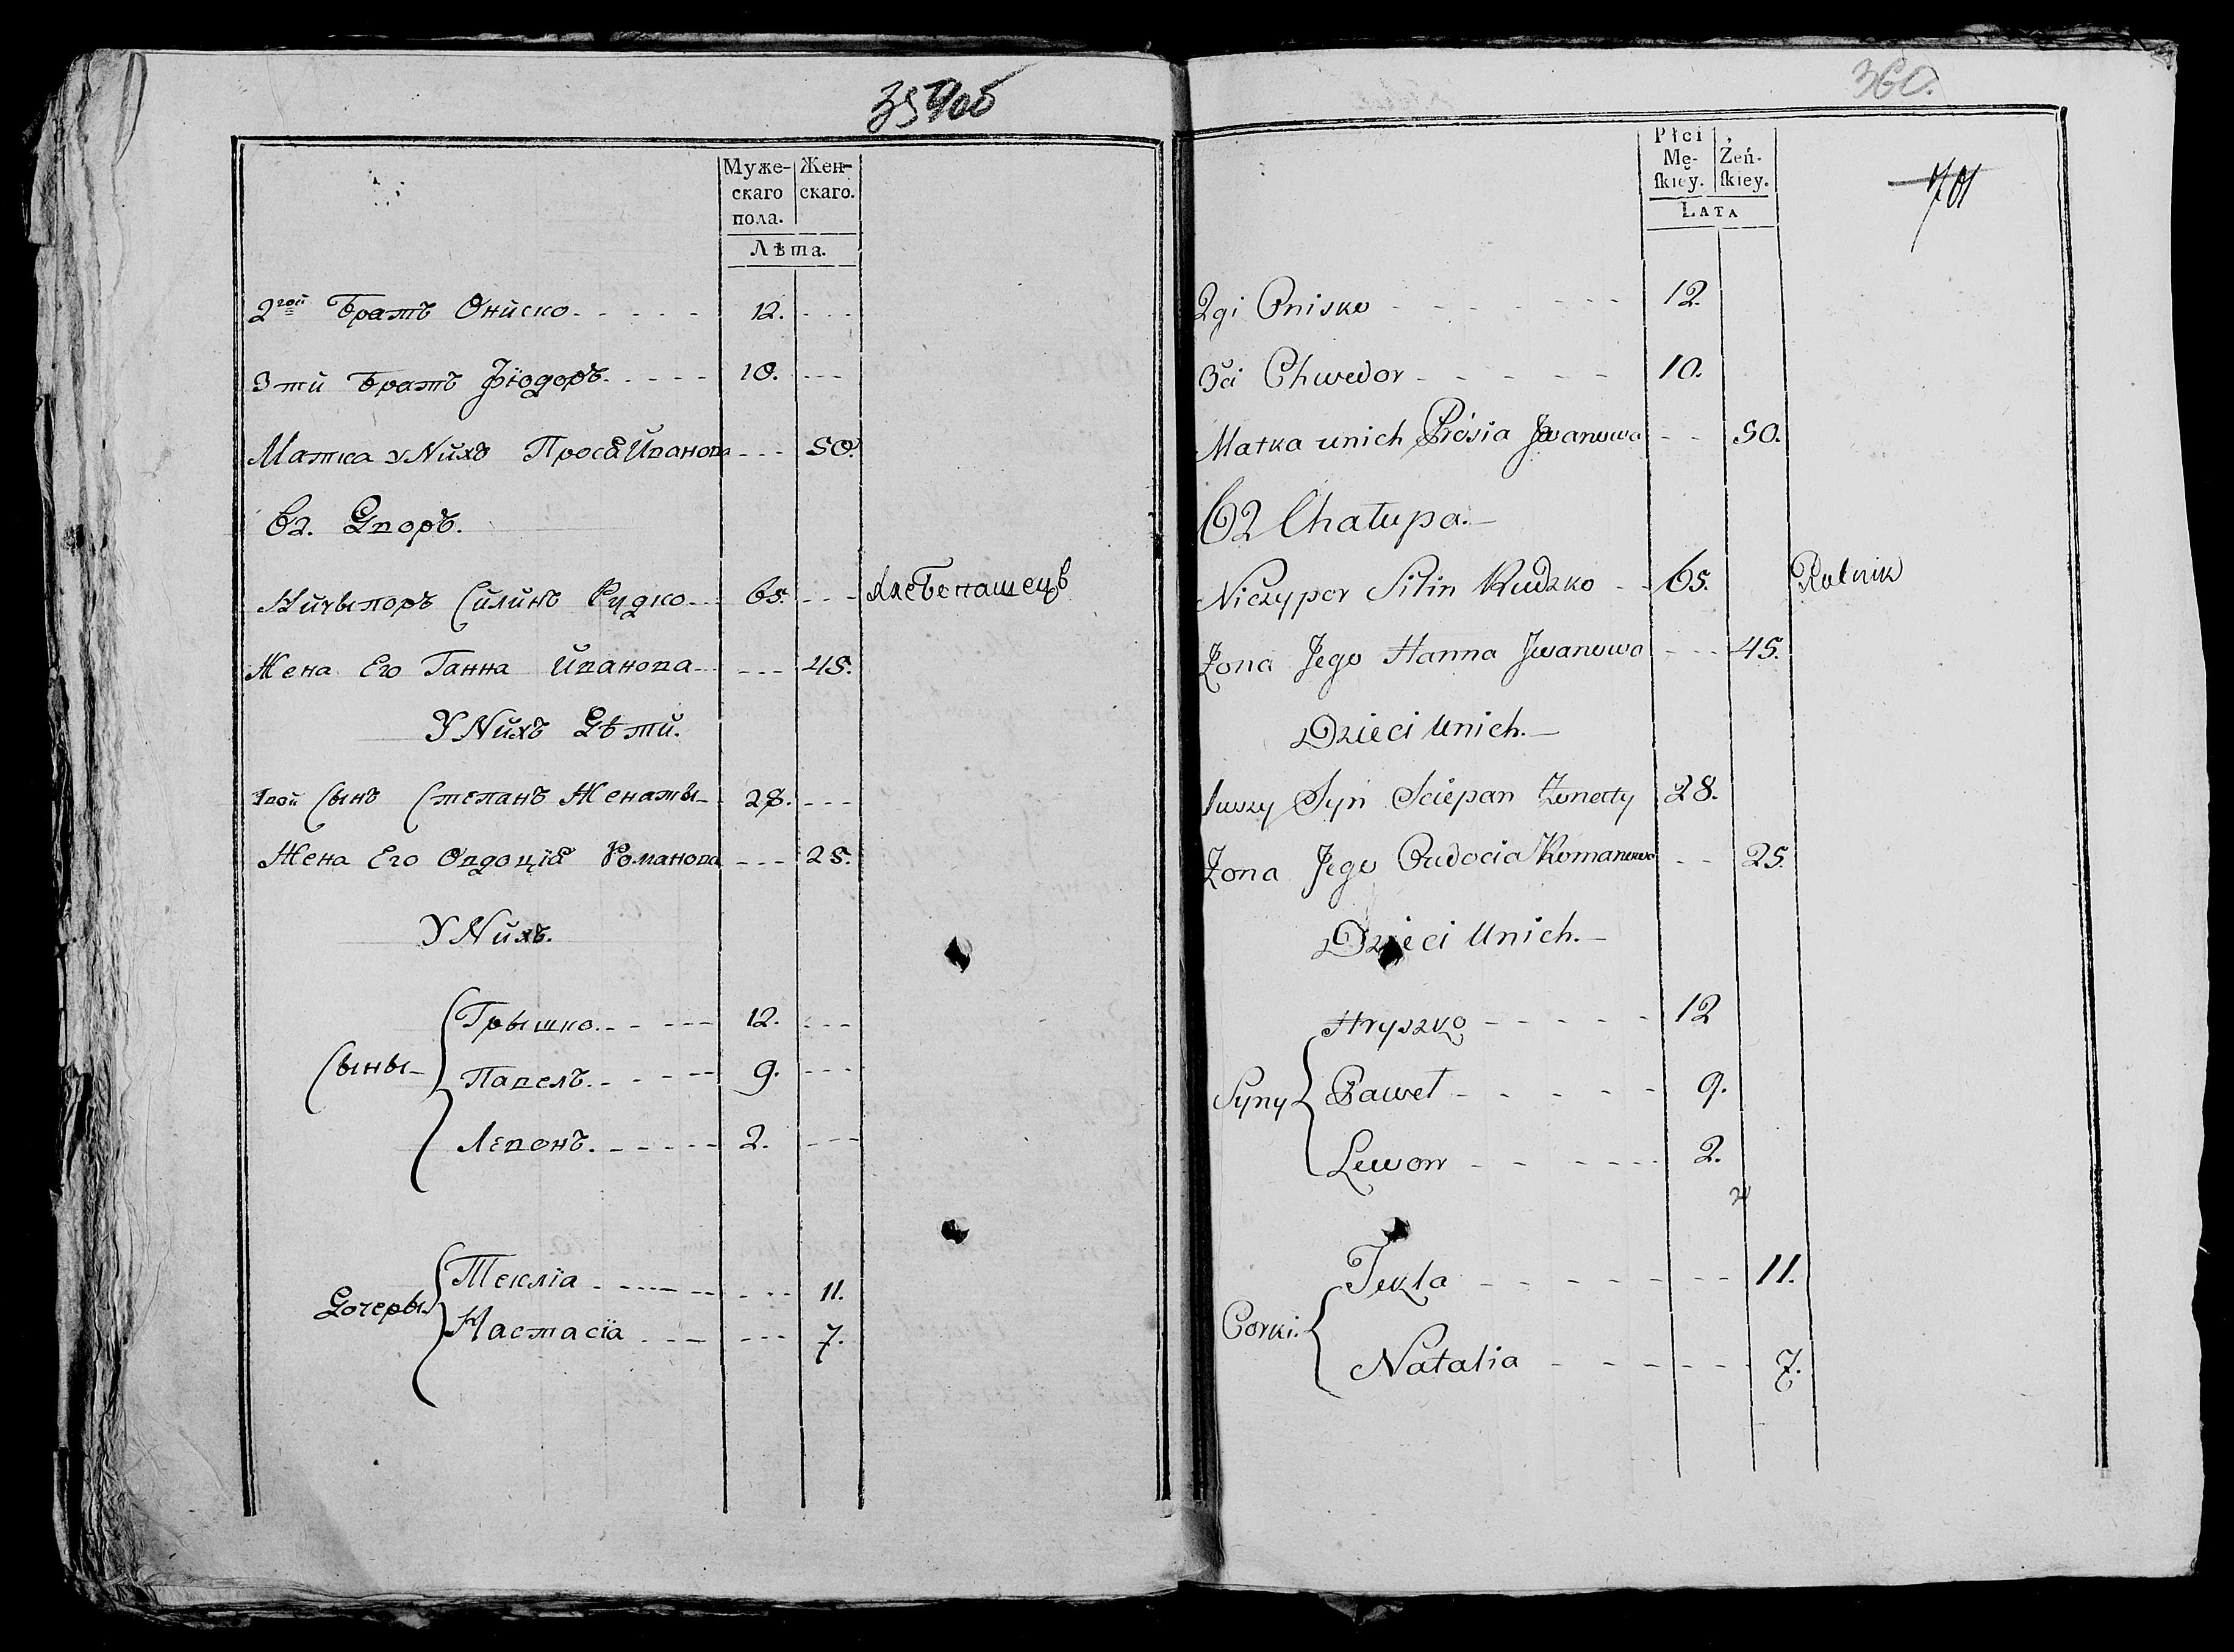 359об
Муже-
скаго
пола.
Жен-
скаго.
Лѣта.
2гой Братъ Онйско 12.
3 тй Братъ Фїодоръ 10.
Матка у Нйхъ Прося Йванова 50.
62. Дворъ.
Нйчыпоръ Сйлйнъ Рудко 65. Хлебопашецъ
Жена Его Ганна Йванова 45.
У Нйхъ Дѣтй.
1вой Сынъ Степанъ Женаты 28.
Жена Его Овдоцїя Романова 25.
У Нйхъ.
Сыны
Грышко 12.
Павелъ. 9.
Левонъ. 2.
Дочеры
Теклїа 11.
Настасїа 7.
360.
701
Płci
Mę-
ſkiey.
Żeń-
ſkiey.
Lata
2gi Onisko 12.
3ci Chwedor 10.
Matka unich Prosia Jwanowa 50.
62 Chałupa.
Niczypor Silin Rudzko 65. Rolnik
Żona Jego Hanna Jwanowa 45.
Dzieci unich.
1wszy Syn Sciepan Żonatty 28.
Żona Jego Oudocia Romanowa 25.
Dzieci Unich.
Syny
Hryszko 12
Paweł 9.
Lewon 2.
Corki.
Tekla 11.
Natalia 7.